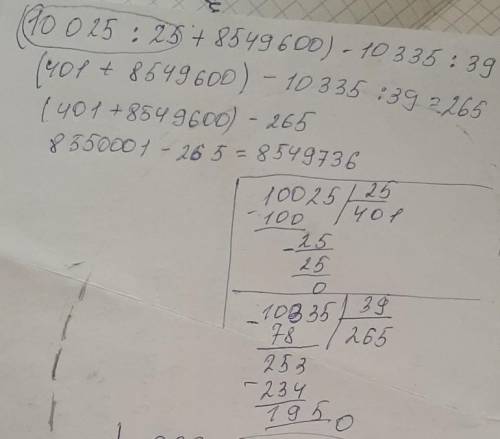 (10025 : 25 + 8549600) - 10335 : 39
(401 + 8549600) - 10335 : 39 = 265
(401 + 8549600) - 265
8550001 - 265 = 8549736
10025 | 25
-100 | 401
-25
25
0
-10335 | 39
78 | 265
253
-234
195 0